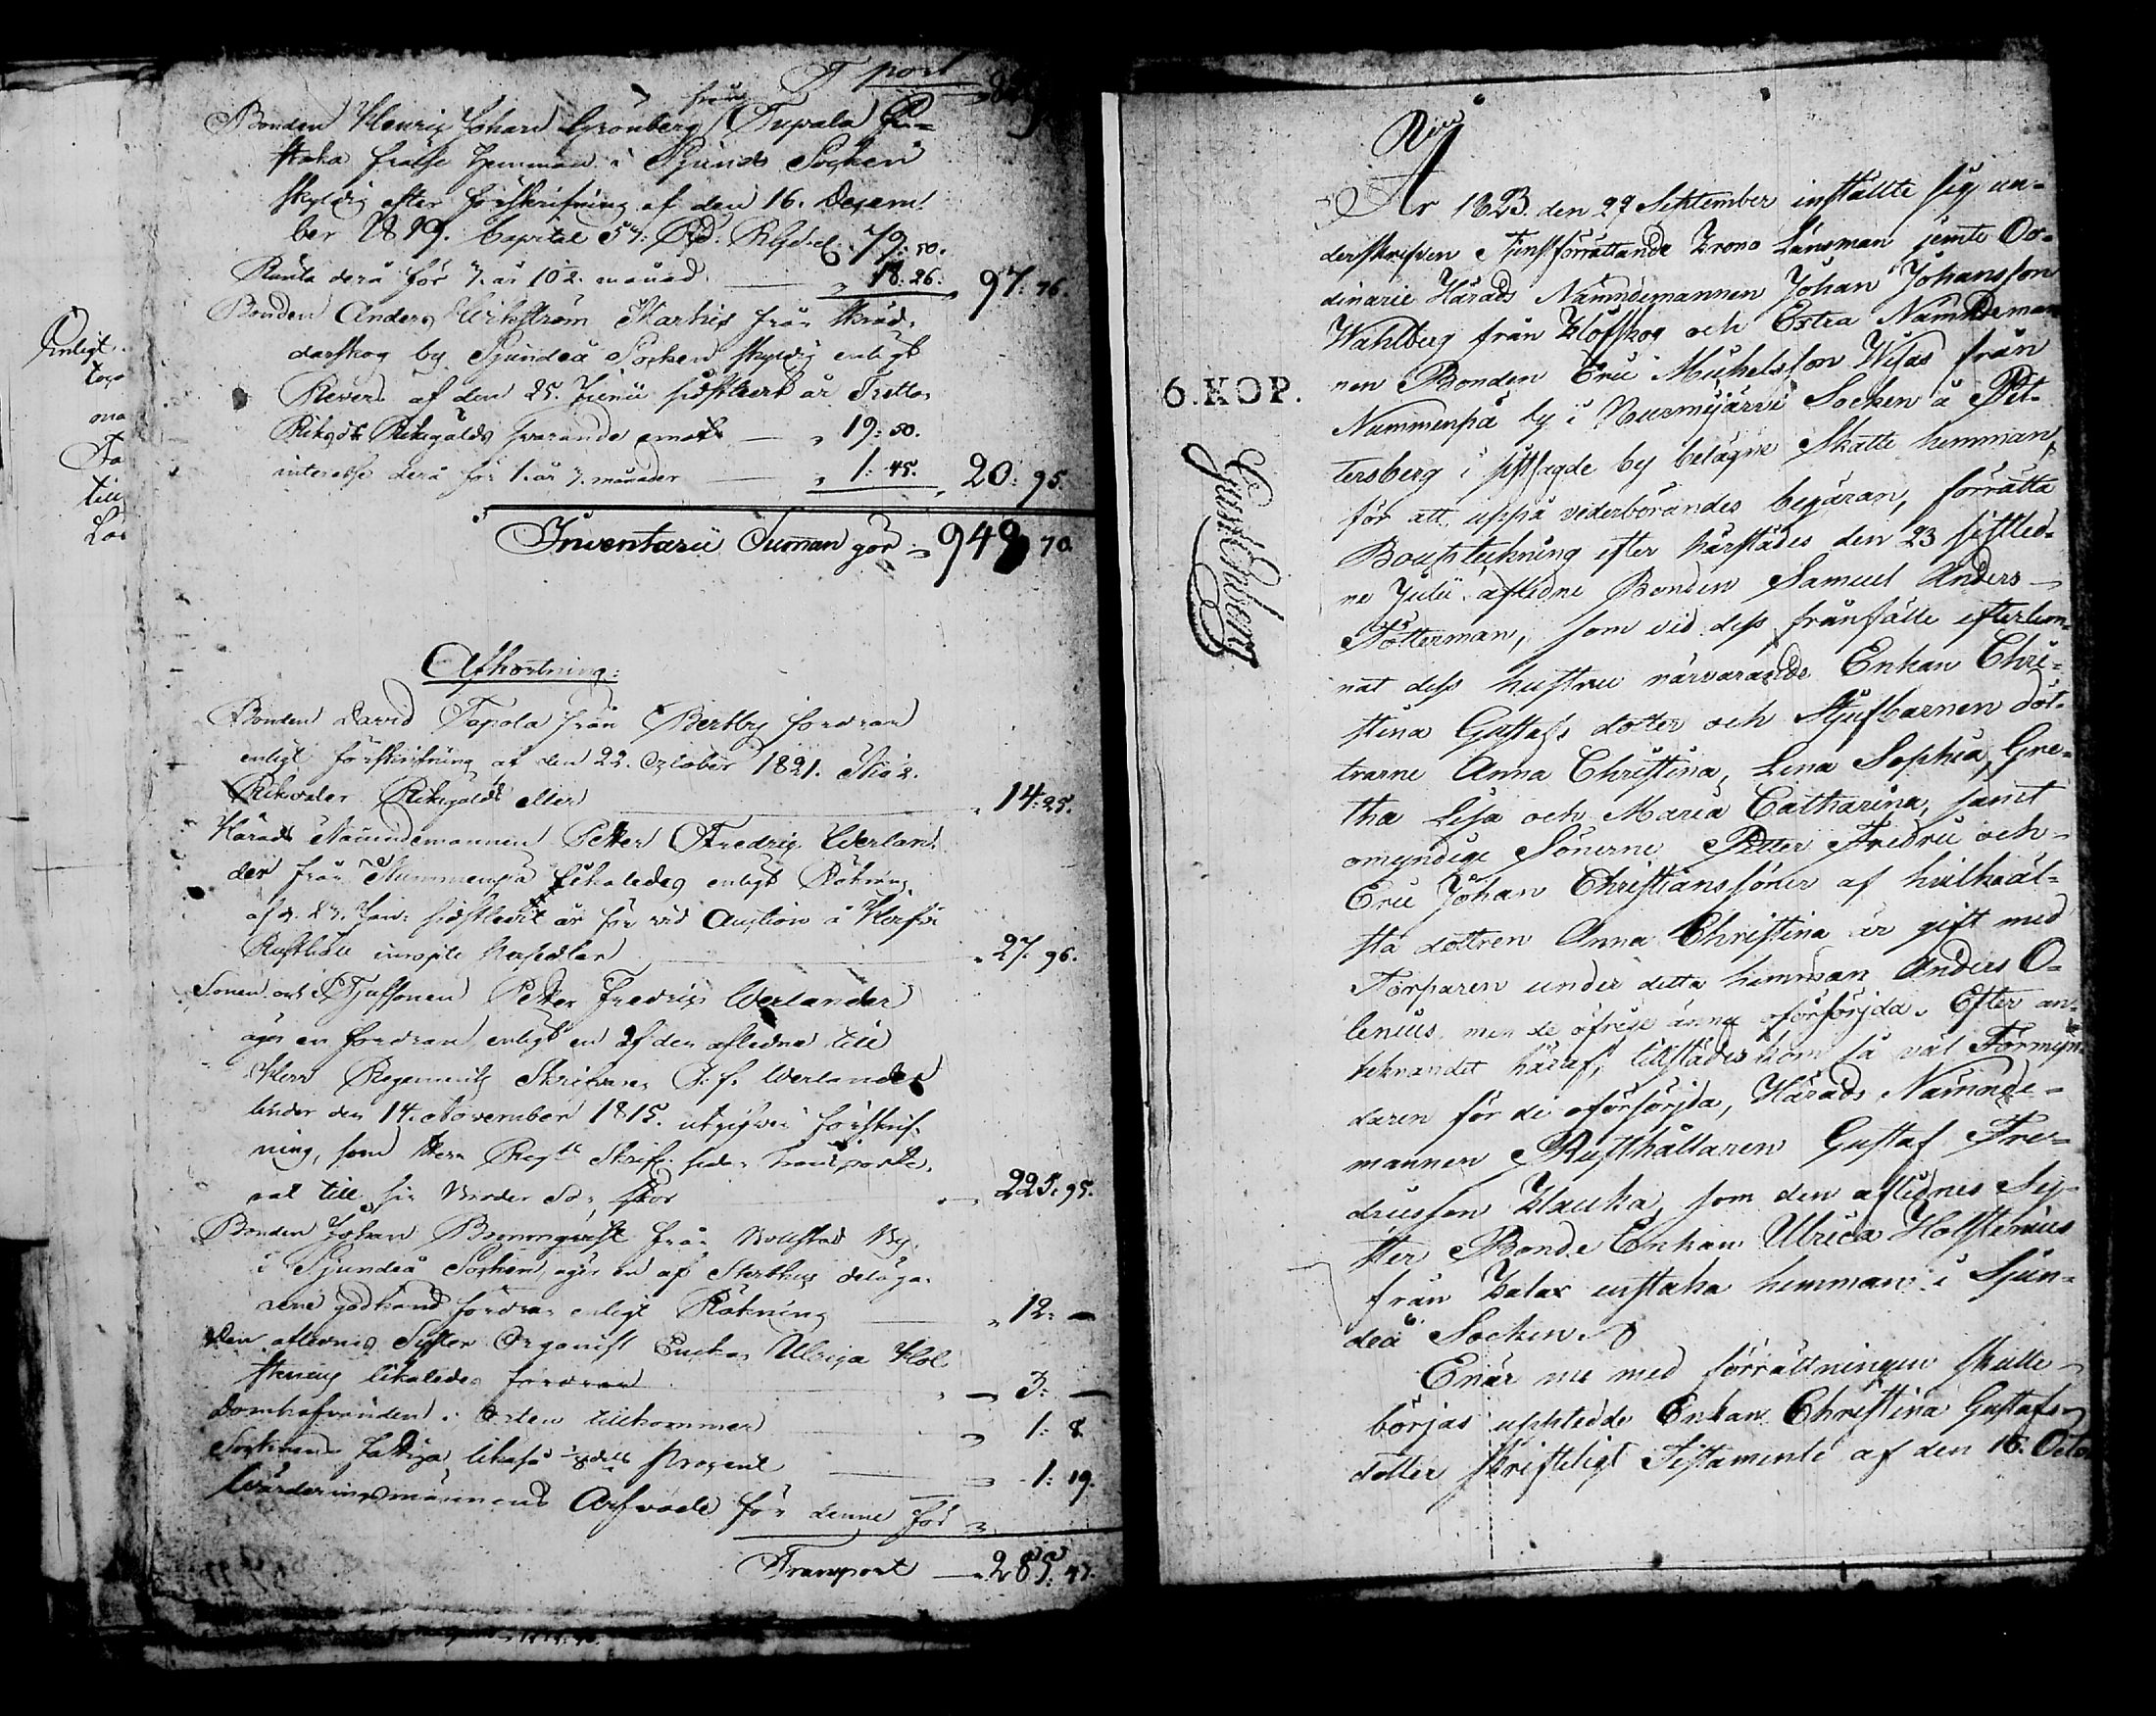 T port
Bonden Henric Johan Grönberg från Tupala En-
staka frälse hemman i Sjundo Socken
skyldig efter förskrifning af den 16. Decem-
ber 1819. Capital 57: Rd: Rgd 79: 50.
Ränta derå för 7. år 10 2. månad 18: 26. 97: 76.
Bonden Anders Wikström från
darskog by Sjundeå Socken skyldig enligt
Revers af den 25. Junii sidstledt år Tretton
Riksdr Riksgälds svarande emot 19: 50.
interesse derå för 1. år 3. månader 1: 45. 20: 95.
Inventarii Summan gör 948 70.
Afkortning:
Bonden David Tapola från Bertby fordran
enligt förskrifning af den 22. October 1821. Tio 2.
Riksdaler Riksgälds eller 14: 25.
Härads Nämndemannen Petter Fredric Werlan-
der från Nummenpä likaledes enligt Räkning
af d. 27. Jan: sidstledit år för vid Auction å
Rusthåll inropte 27. 96.
Sonen och Stjufsonen Petter Fredric Werlander
äger en fordran enligt en af den aflidna till
Herr Regements Skrifvaren J. f. Werlander
under den 14. November 1815. utgifven förskrif-
ning, som Herr Regts Skrif: sedan transporte-
rat till sin Broder Son, stor 225: 95.
Bonden Johan Bromqvist från Bollstad By
i Sjundeå Socken, äger en af Sterbhus delega-
rene godkänd fordran enligt Räkning 12: —
Den aflednes Syster Organist Enkan Ulrica Hol-
stenius likaledes fordran 3: —
Domhafvanden i Orten tillkommer 1: 8
Socknens fattiga likaså 1/8 dels Procent 1: 19.
Wärderingsmännens Arfvode för denne för
Transport 285: 47.
Enligt
ona
till
6. KOP.
Gust Ehrberg
År 1823. den 27 September instälte sig un-
derskrifven Tjenstförrättande Krono Länsman jemte Or-
dinarie Härads Nämndemannen Johan Johansson
Wahlberg från Klöfskog och Extra Nämndeman-
nen Bonden Eric Michelsson Wisas från
Nummenpä by i Nurmijärvi Socken å Pet-
tersberg i sistsagde by belägne Skatte hemman,
för att uppå vederbörandes begäran, förrätta
Bouptekning efter härstädes den 23 sistled-
ne Julii afledne Bonden Samuel Anders
Tötterman, som vid dess frånfälle efterlem-
nat dess hustru närvarande Enkan Chri-
stina Gustafs dotter och Stjufbarnen döt-
trarne Anna Christina, Lena Sophia, Gre-
tha Lisa och Maria Catharina, samt
omyndige Sönerne Petter Fredric och
Eric Johan Christianssöner af hvilka äl-
sta dottren Anna Christina är gift med
Torparen under detta hemman Anders O-
lenius, men de öfrige ännu oförsörjda. Efter an-
teknandet häraf, tillstädes kom så väl Förmyn-
daren för de oförsörjda, Härads Nämnde-
mannen Rusthållaren Gustaf Fred-
ricsson Klauka, som den aflednes Sy-
ster Bonde Enkan Ulrica Holstenius
från Kalax enstaka hemman i Sjun-
deå Socken.
Enär nu med förrättningen skulle
börjas uppteedde Enkan Christina Gustafs-
dotter skrifteligt Testamente af den 16. Octo-